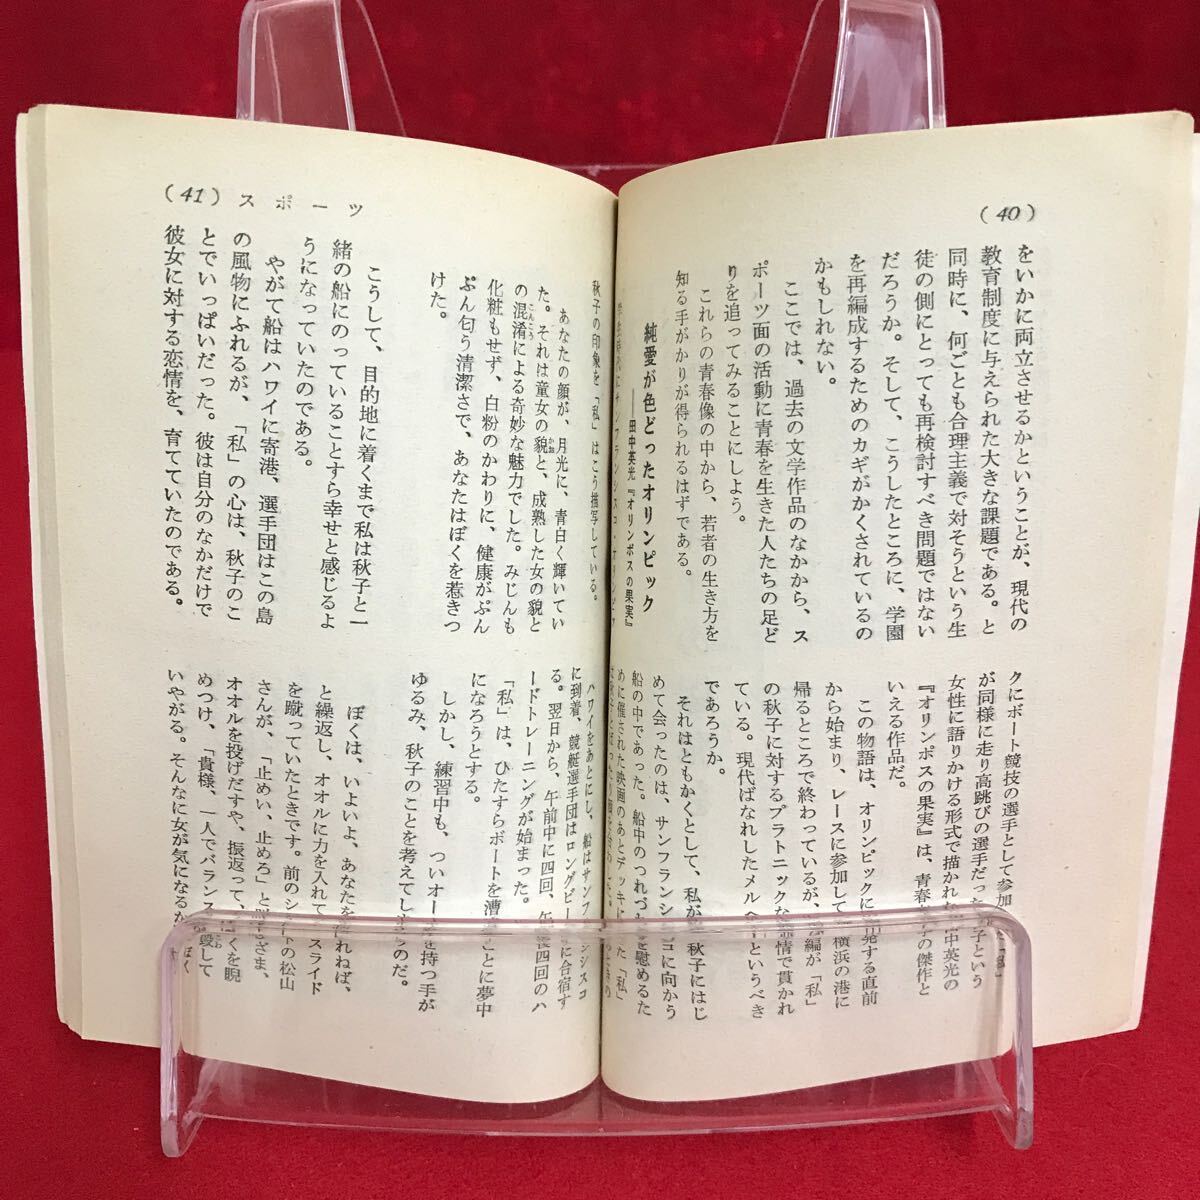 (40)
をいかに両立させるかということが、現代の
教育制度に与えられた大きな課題である。と
同時に、何ごとも合理主義で対そうという生
徒の側にとっても再検討すべき問題ではない
だろうか。そして、こうしたところに、学園
を再編成するためのカギがかくされているの
かもしれない。
ここでは、過去の文学作品のなかから、ス
ポーツ面の活動に青春を生きた人たちの足ど
りを追ってみることにしよう。
これらの青春像の中から、若者の生き方を
知る手がかりが得られるはずである。
純愛が色どったオリンピック
――田中英光『オリンポスの果実』
学生時代にサンフランシスコ・オリンピッ
クにボート競技の選手として参加
が同様に走り高跳びの選手だった 子という
女性に語りかける形式で描かれ 中英光の
『オリンポスの果実』は、青春 の傑作と
いえる作品だ。
この物語は、オリンピックに 発する直前
から始まり、レースに参加して 横浜の港に
帰るところで終わっているが、 編が「私」
の秋子に対するプラトニックな 情で貫かれ
ている。現代ばなれしたメルヘ というべき
であろうか。
それはともかくとして、私が 秋子にはじ
めて会ったのは、サンフランシ コに向かう
船の中であった。船中のつれづ を慰めるた
めに催された映画のあとデッキに た「私」
(41) スポーツ
秋子の印象を「私」はこう描写している。
あなたの顔が、月光に、青白く輝いてい
た。それは童女の貌と、成熟した女の貌と
の混淆による奇妙な魅力でした。みじんも
化粧もせず、白粉のかわりに、健康がぷん
ぷん匂う清潔さで、あなたはぼくを惹きつ
けた。
こうして、目的地に着くまで私は秋子と一
緒の船にのっていることすら幸せと感じるよ
うになっていたのである。
やがて船はハワイに寄港、選手団はこの島
の風物にふれるが、「私」の心は、秋子のこ
とでいっぱいだった。彼は自分のなかだけで
彼女に対する恋情を、育てていたのである。
ハワイをあとにし、船はサンフ シスコ
に到着、競艇選手団はロングビー に合宿す
る。翌日から、午前中に四回、午後四回のハ
ードトレーニングが始まった。
「私」は、ひたすらボートを漕 ことに夢中
になろうとする。
しかし、練習中も、ついオー を持つ手が
ゆるみ、秋子のことを考えてし のだ。
ぼくは、いよいよ、あなたを れねば、
と繰返し、オオルに力を入れて スライド
を蹴っていたときです。前のシ トの松山
さんが、「止めい、止めろ」と ざま、
オオルを投げだすや、振返って、 くを睨
めつけ、「貴様、一人でバランス 毀して
いやがる。そんなに女が気になるか